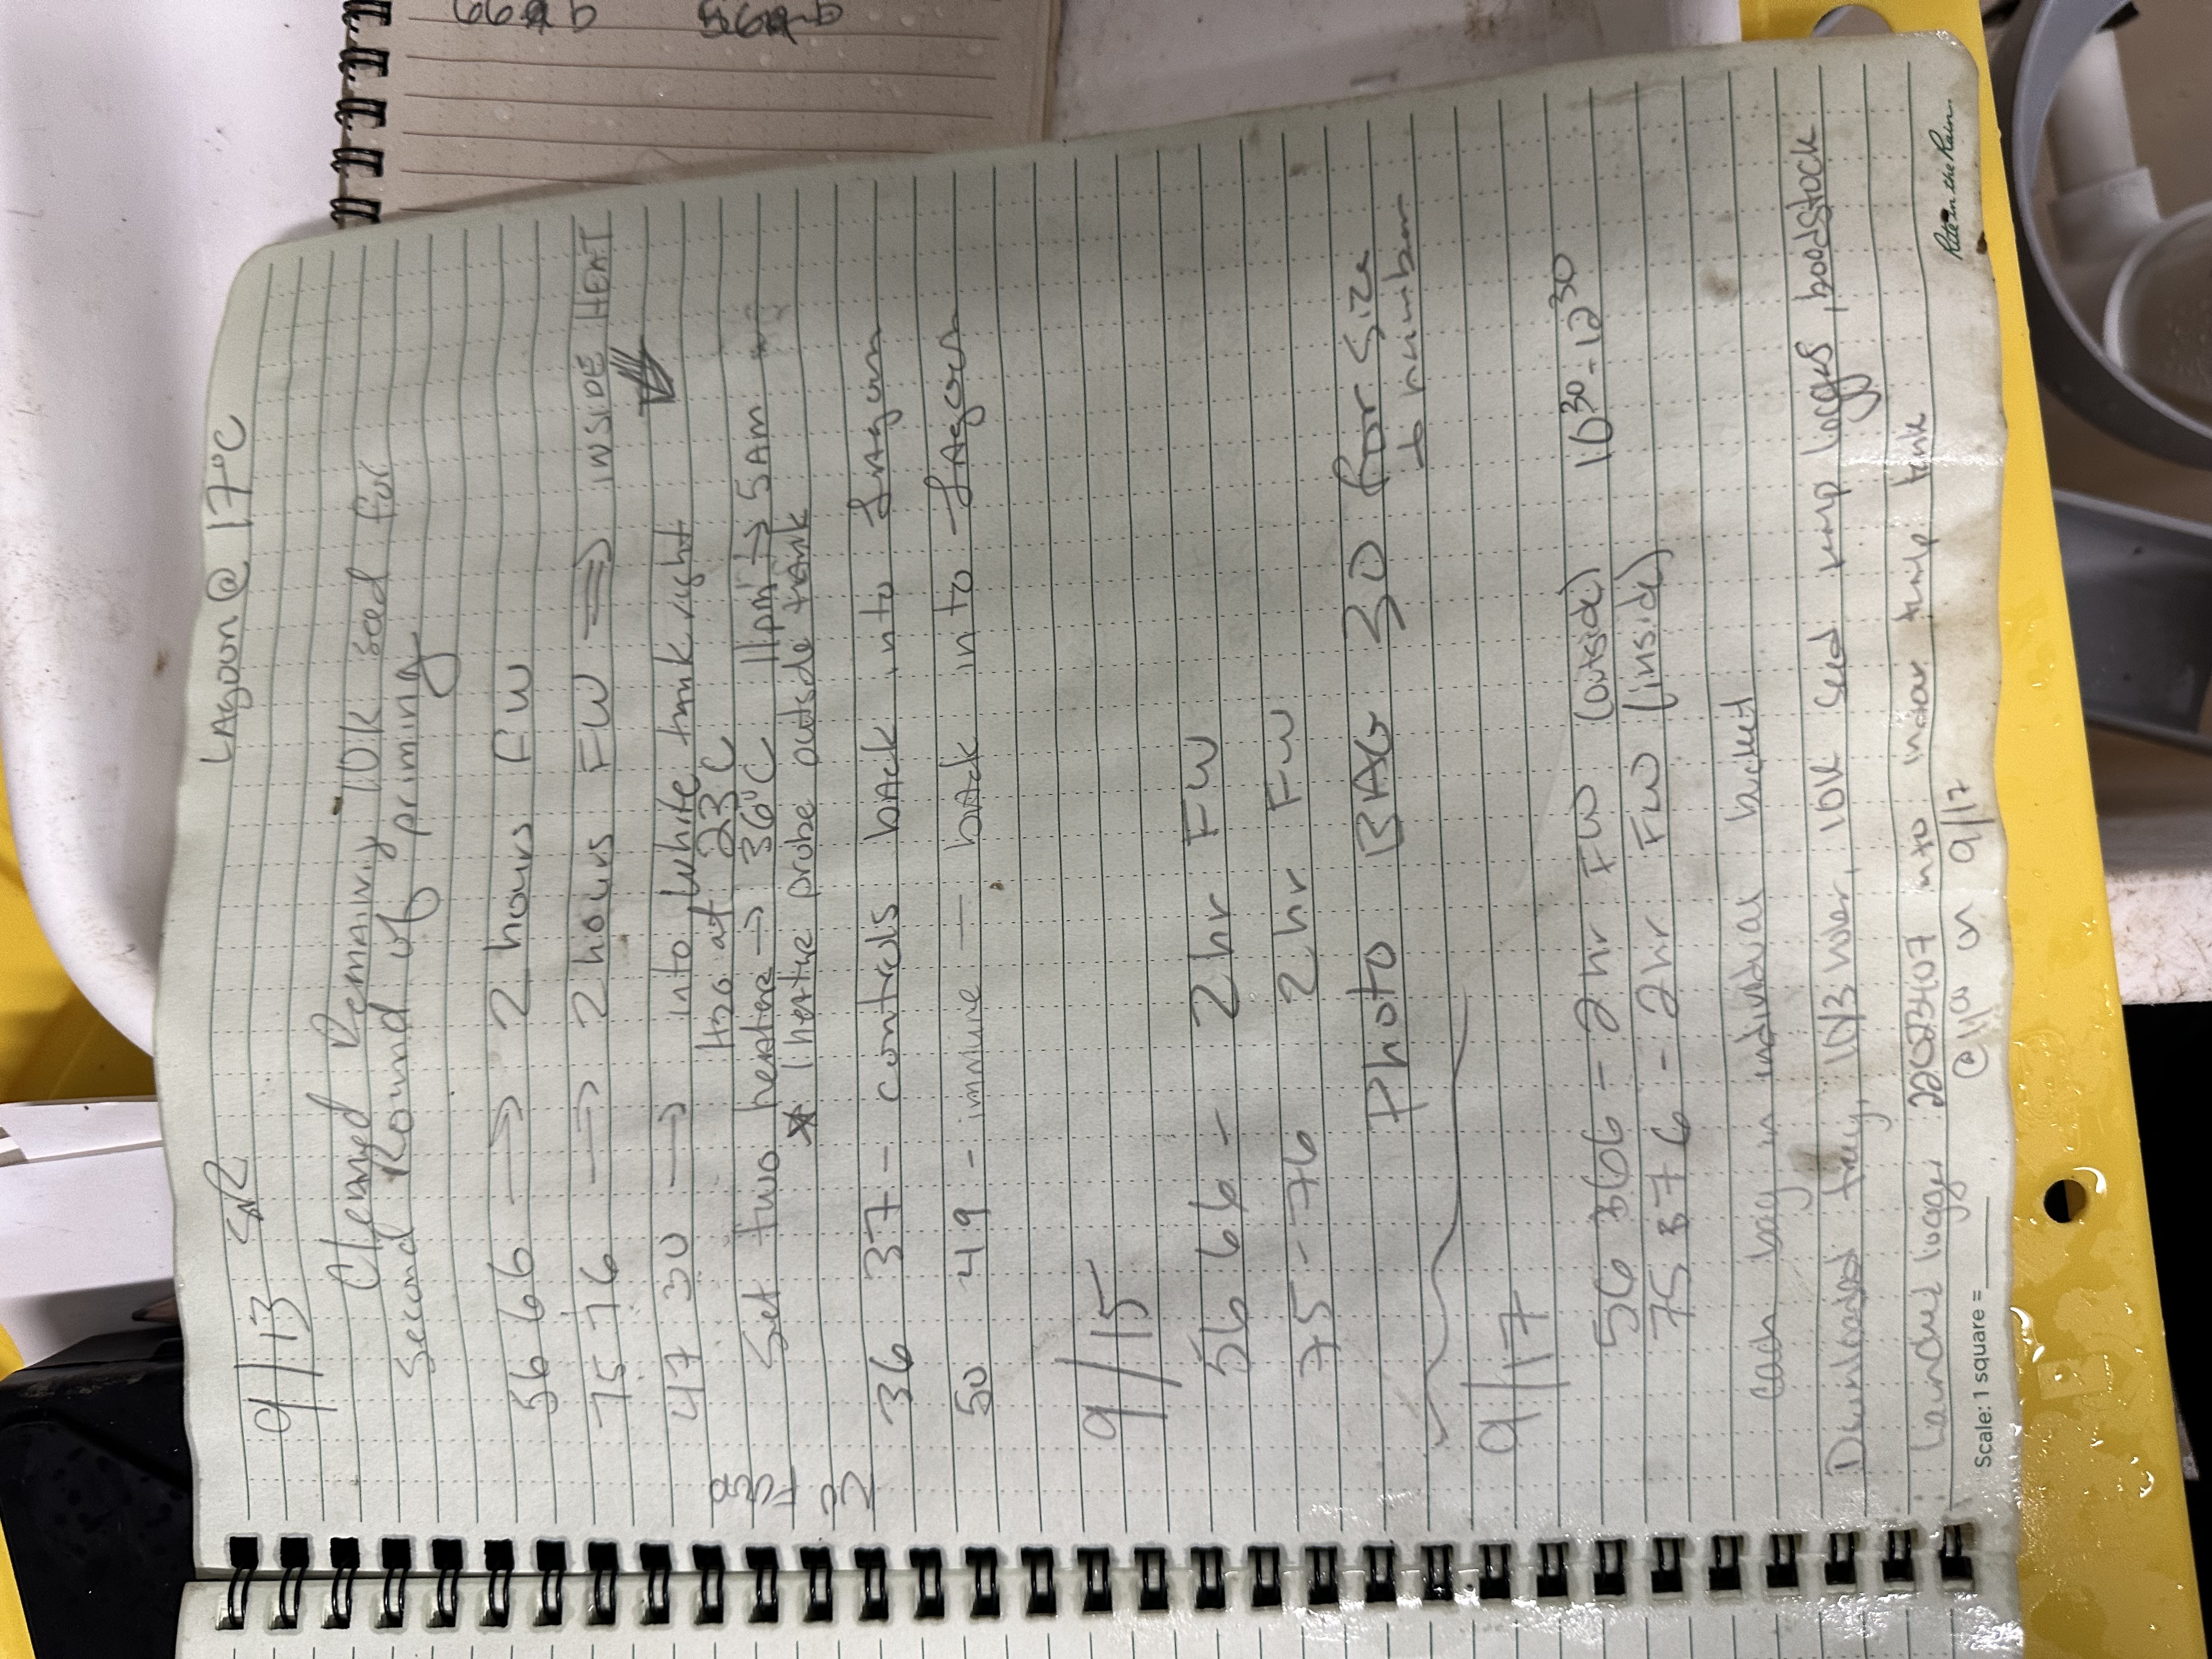 9/13 SR Lagoon @ 17°C
Cleaned Remaining 10K seed for
second Round of priming
56 66 → 2 hours FW
75 76 → 2 hours FW ⇒ INSIDE HEAT
47 30 → into white tank right
H2O at 23°C
Set two heater → 36°C 11pm → 5AM
* 1 heater probe outside tank
NO FOOD
36 37 - controls back into Lagoon
50 49 - immune — back into Lagoon
9/15
56 66 - 2 hr FW
75 - 76 2 hr FW
Photo BAG 30 for size
+ number
9/17
56 & 66 - 2 hr FW (outside) 10³⁰ - 12³⁰
75 & 76 - 2 hr FW (inside)
each bag in individual bucket
Downloaded tray, 10K seed temp loggers, boodstock
Launched logger 22023407 into indoor temp tank
@ 11⁰⁰ on 9/17
Scale: 1 square = ______
Rite in the Rain